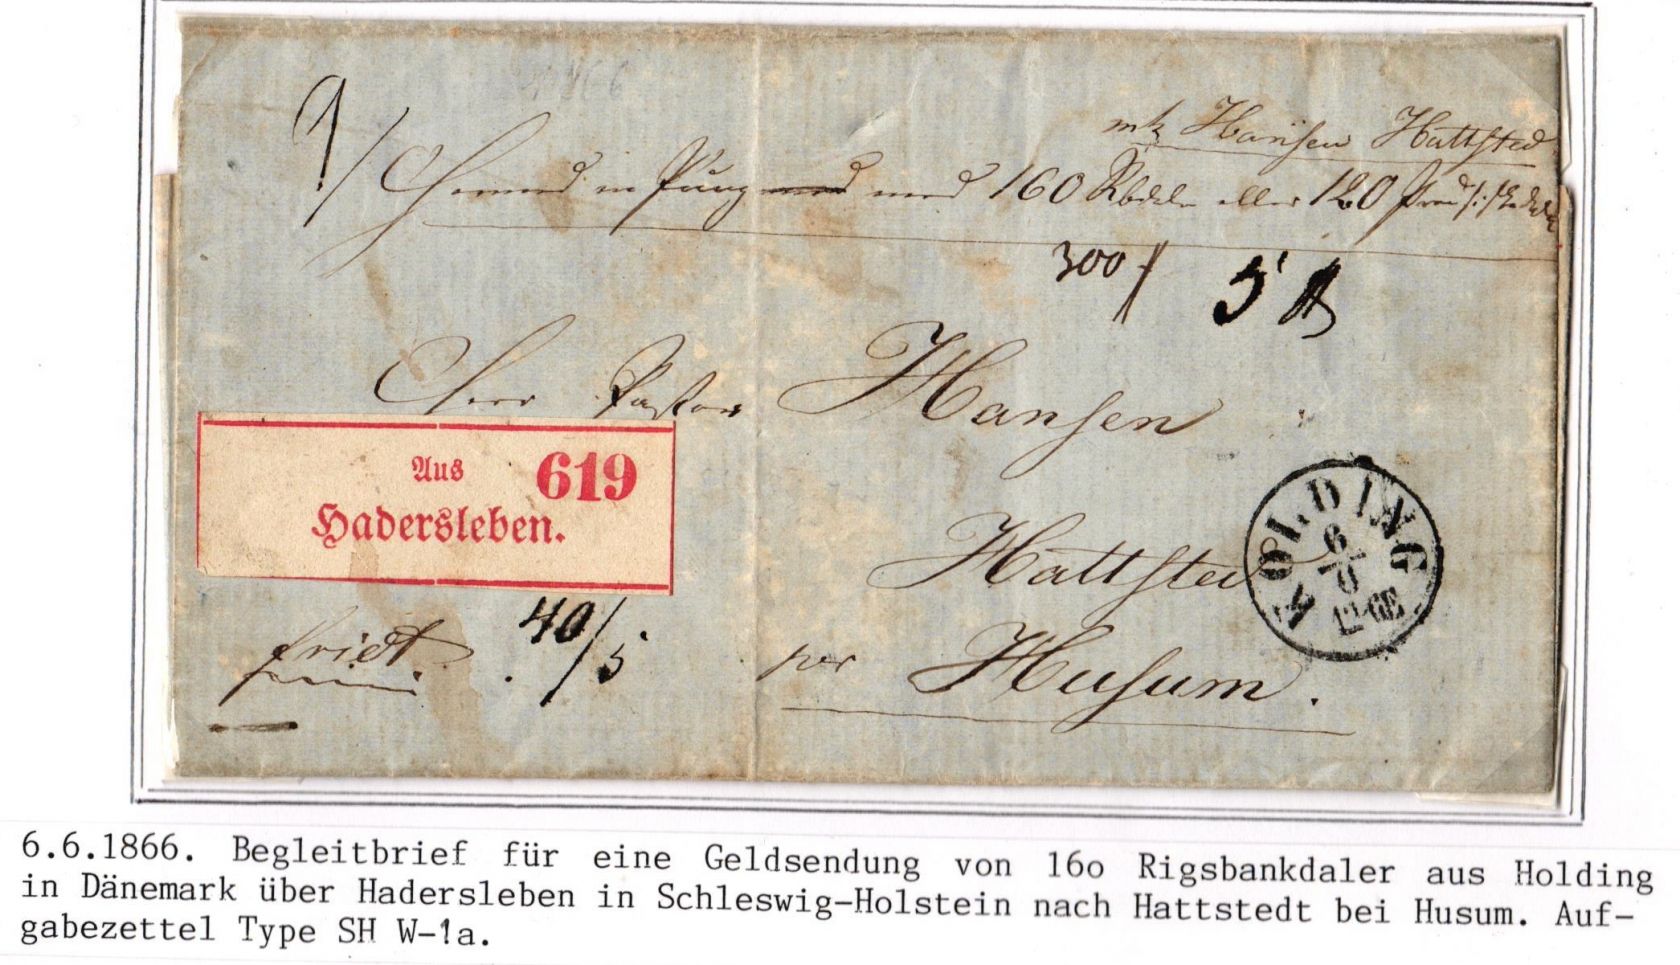 mk Hansen Hattsted
Hermed en Pung med 160 Rbdlr eller 120 Preus:
300
5 ℔
Herr Pastor Hansen
Aus 619
Hadersleben.
Hattsted
KOLDING
6/6
12-6E
40/5
per Husum.
6.6.1866. Begleitbrief für eine Geldsendung von 16o Rigsbankdaler aus Holding
in Dänemark über Hadersleben in Schleswig-Holstein nach Hattstedt bei Husum. Auf-
gabezettel Type SH W-1a.